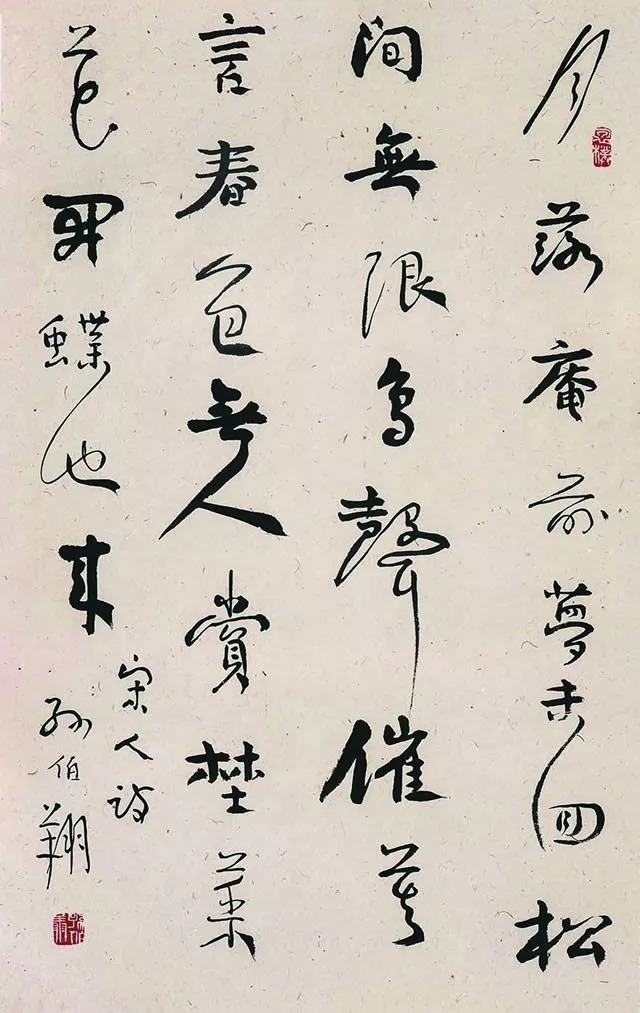 月落庵前夢未回松
間無限鳥聲催莫
言春色無人賞埜菜
花開蝶也來
宋人詩
孫伯翔